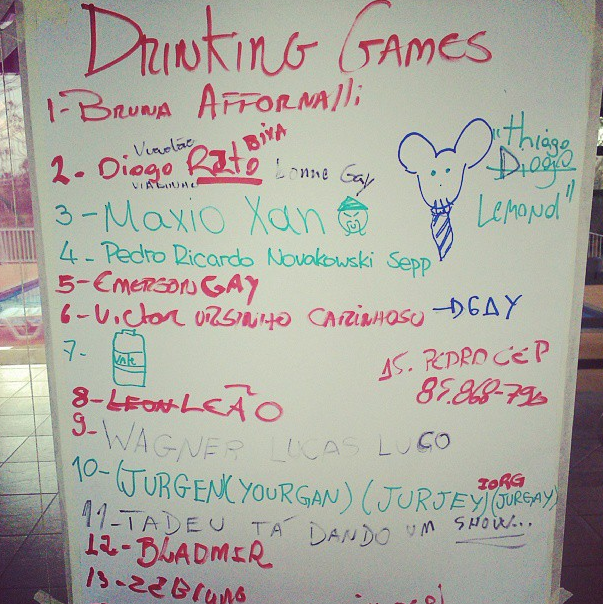 DRINKING GAMES
1-BRUNA AFFORNALLI
Viadão
BIXA
2. Diogo Rato Lonne Gay
"Thiago
Diogo
LEMOND"
3-MAXIO XAN
4- Pedro Ricardo Novakowski Sepp
5-EMERSON GAY
6-Victor URSINHO CARINHOSO → GAY
7-
15. PEDRO CEP
8-LEON LEÃO
9-WAGNER LUCAS LUGO
IORG
10-(JURGEN(YOURGAN) (JURJEY)(JURGAY)
11-TADEU TÁ DANDO UM SHOW...
12-BLADMIR
13-ZÉ Bruno